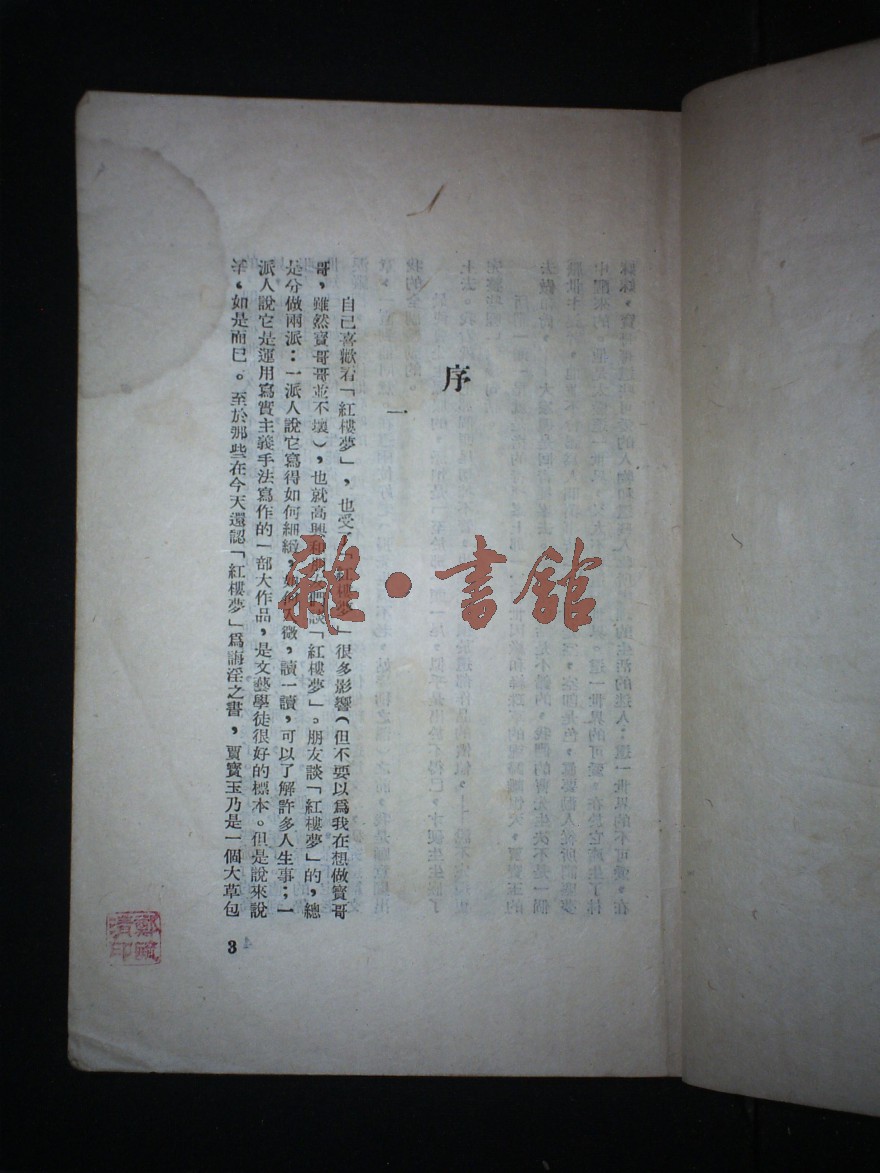 序
一
自己喜歡看「紅樓夢」，也受了「紅樓夢」很多影響（但不要以爲我在想做寶哥
哥，雖然寶哥哥並不壞），也就高興和朋友們談「紅樓夢」。朋友談「紅樓夢」的，總
是分做兩派：一派人說它寫得如何細緻，如何入微，讀一讀，可以了解許多人生事；一
派人說它是運用寫實主義手法寫作的一部大作品，是文藝學徒很好的標本。但是說來說
去，如是而已。至於那些在今天還認「紅樓夢」爲誨淫之書，賈寶玉乃是一個大草包
3
雜·書館